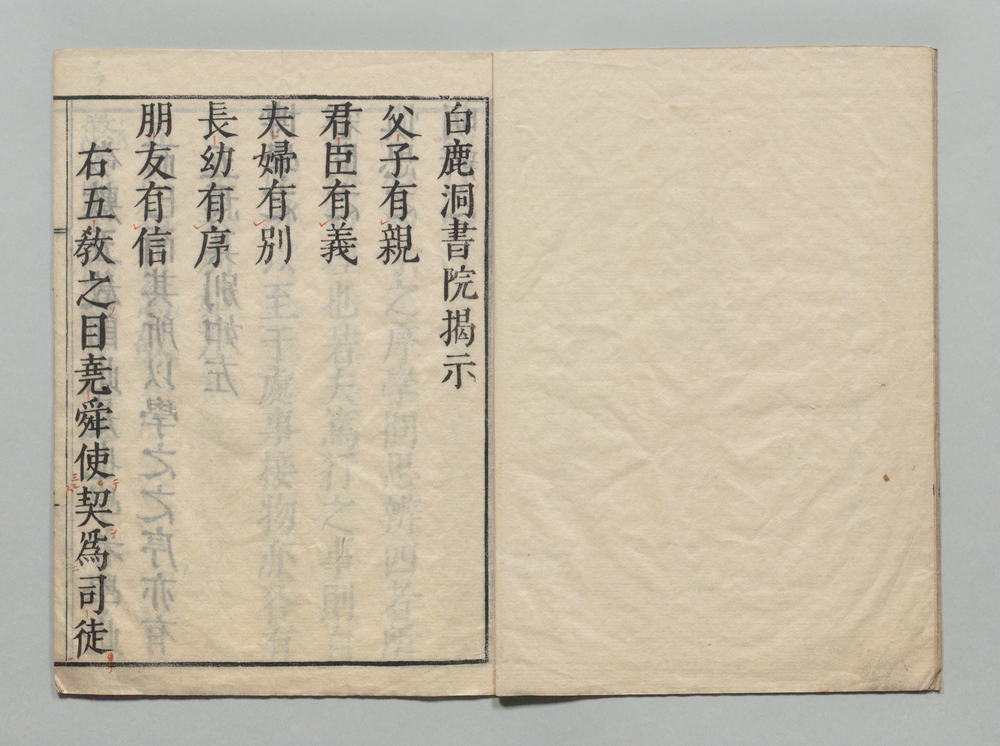 白鹿洞書院揭示
父子有親
君臣有義
夫婦有別
長幼有序
朋友有信
右五教之目堯舜使契爲司徒